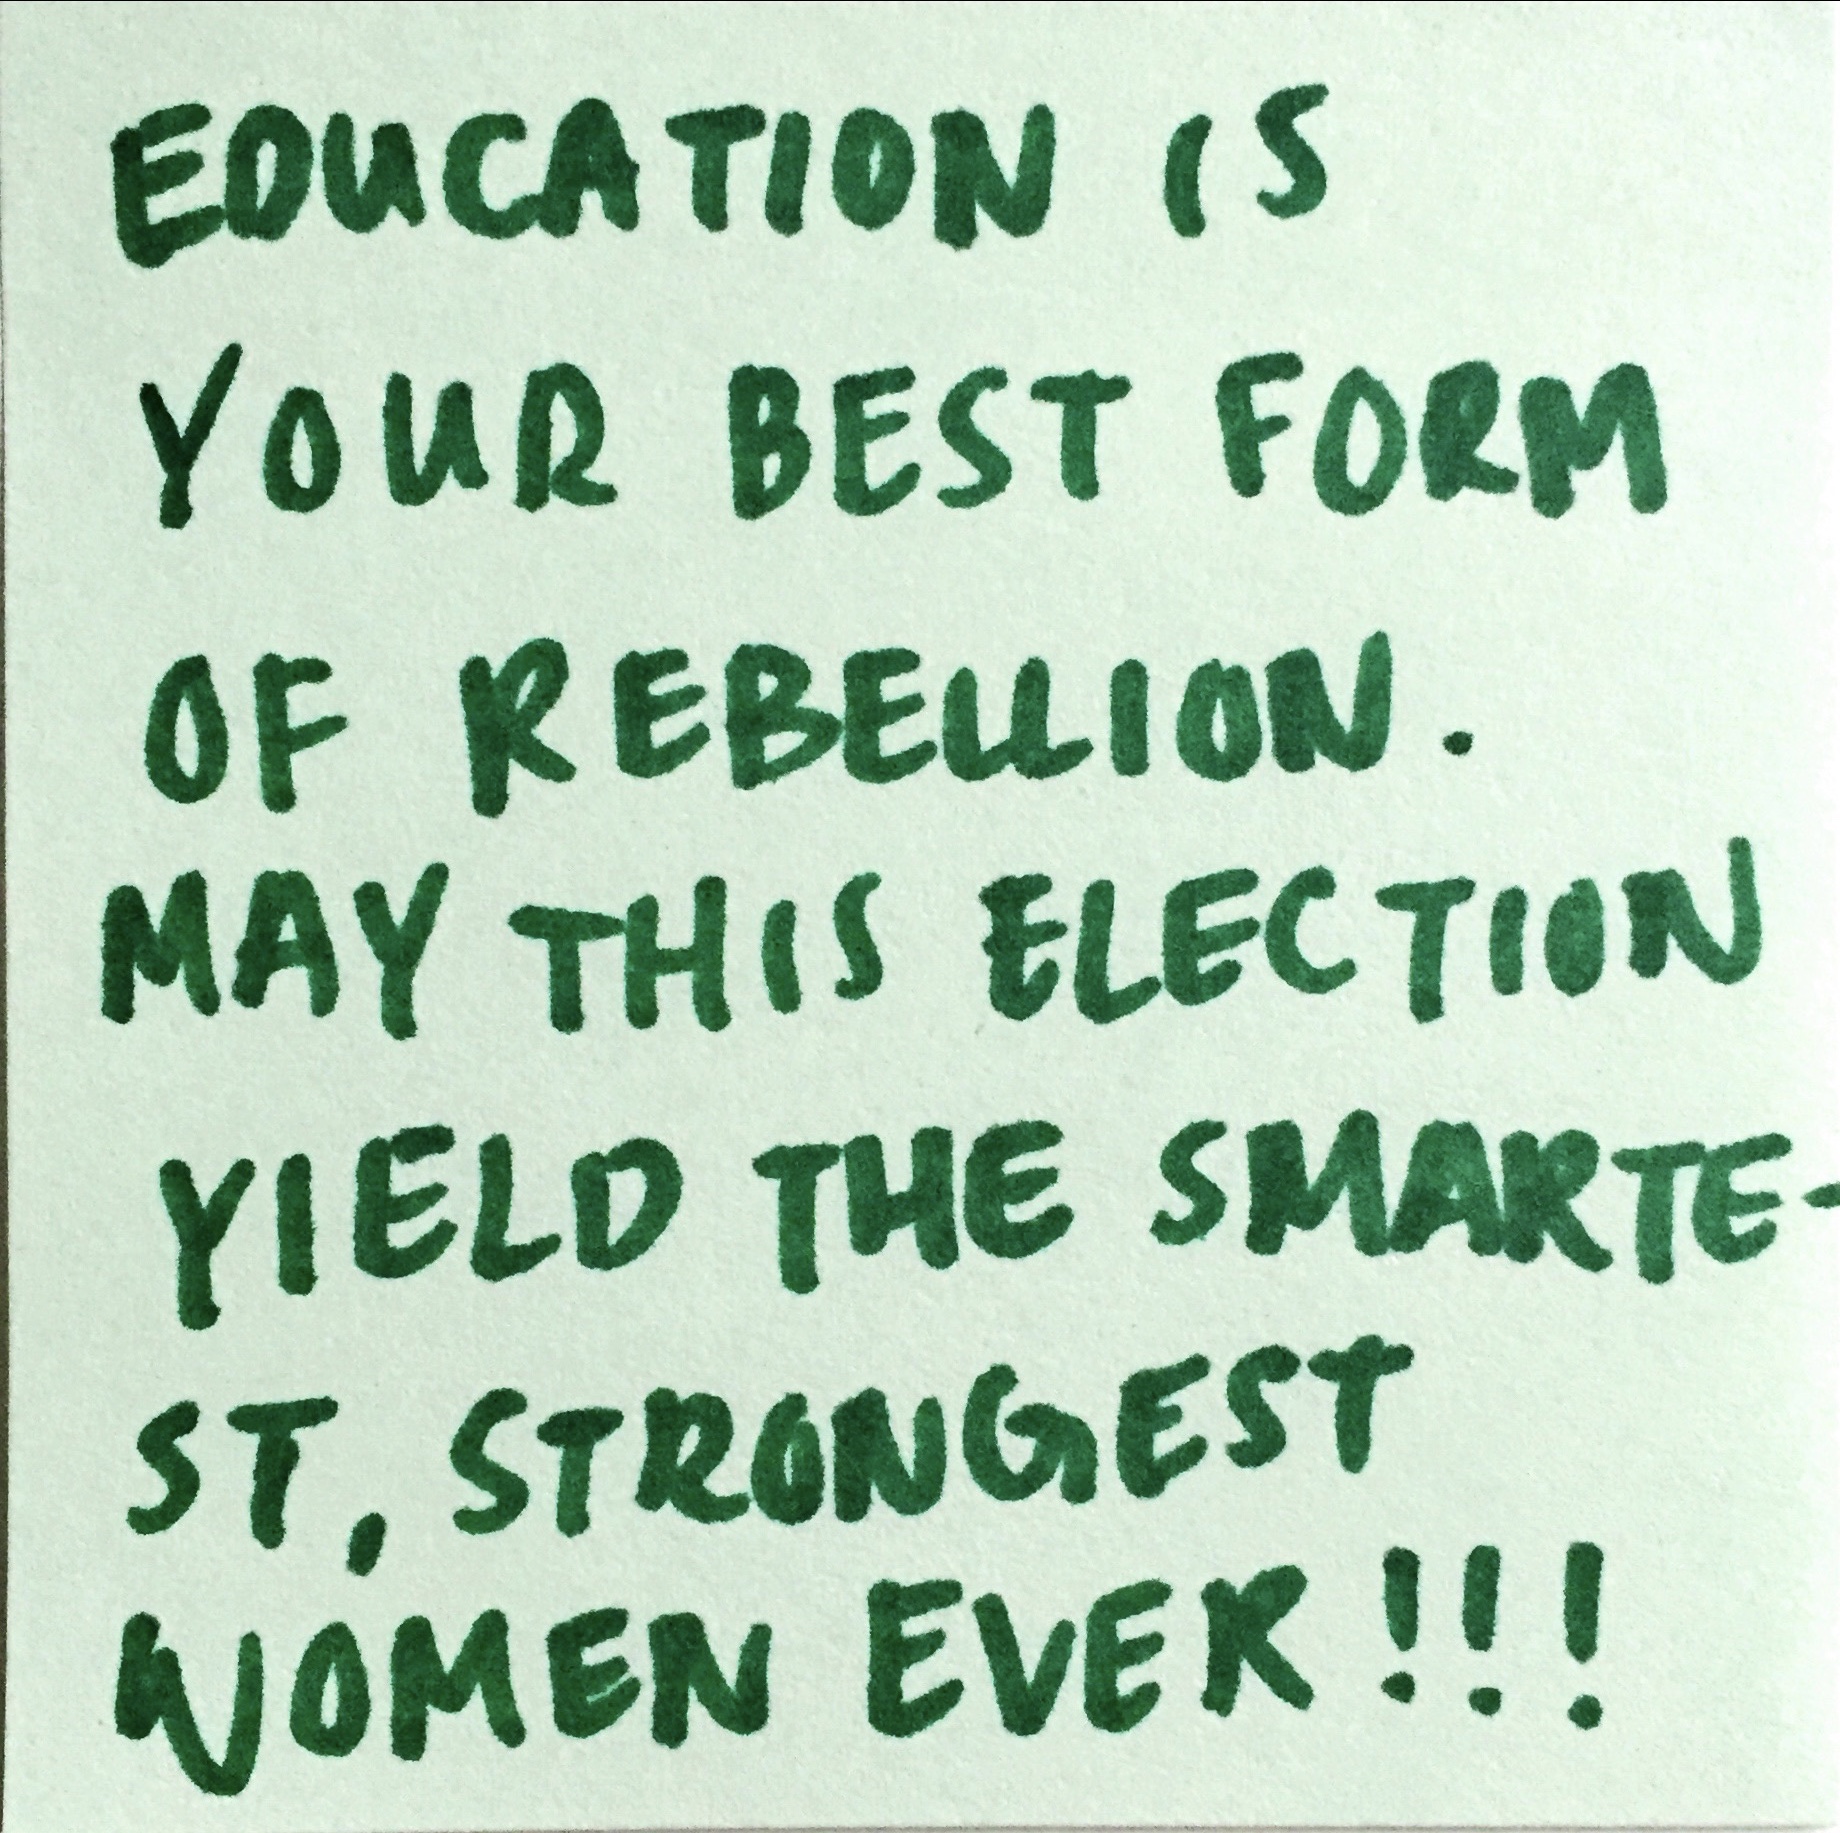 EDUCATION IS
YOUR BEST FORM
OF REBELLION.
MAY THIS ELECTION
YIELD THE SMARTE-
ST, STRONGEST
WOMEN EVER!!!